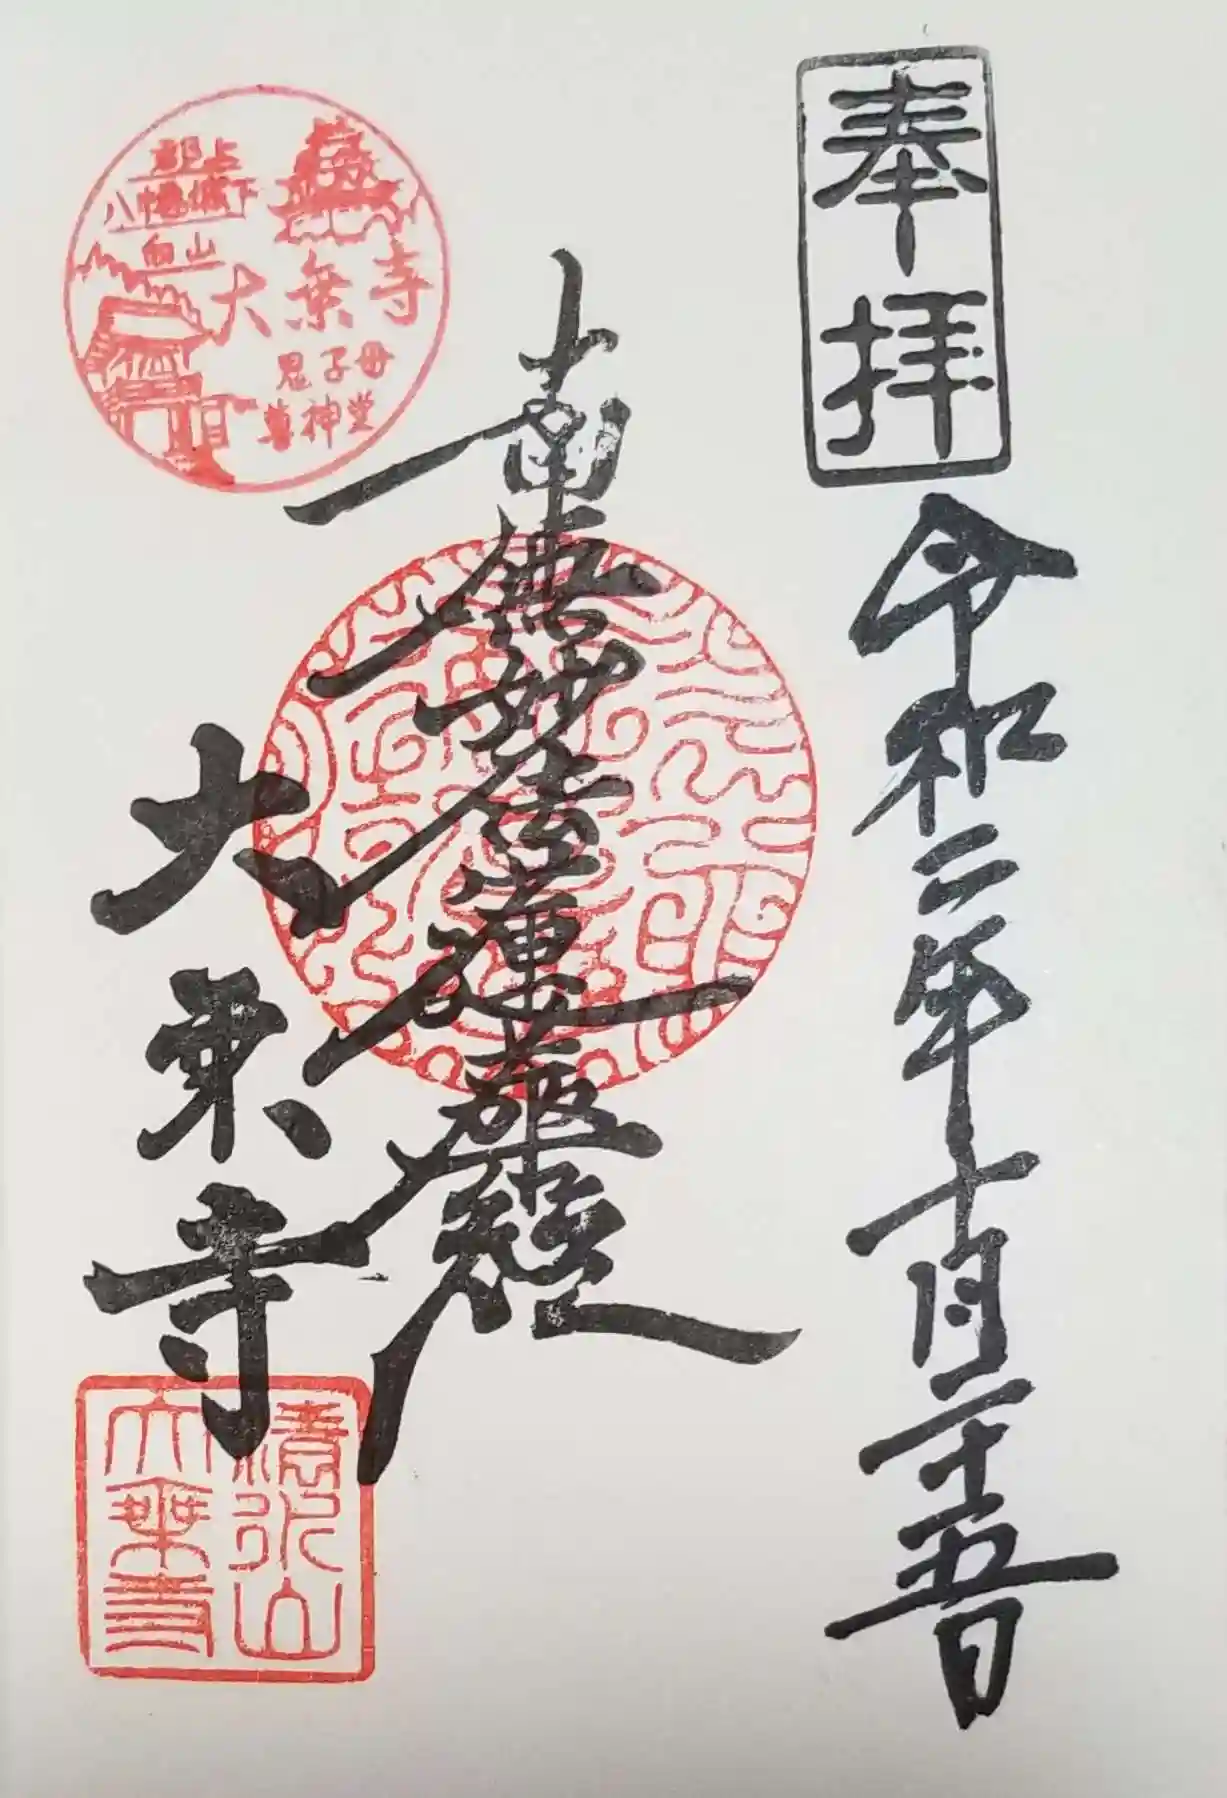 奉拝
令和二年十月二十五日
南無妙法蓮華経
大乗寺
郡上
八幡城下
白山
大乗寺
鬼子母
尊神堂
山
大乗寺